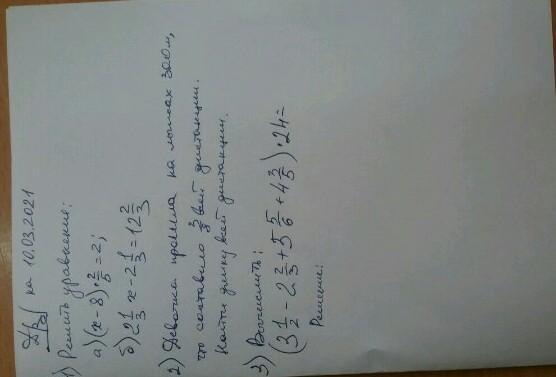 Д/з на 10.03.2021
1) Решить уравнение:
а) (x - 8) · 2/5 = 2;
б) 2 1/3 x - 2 1/3 = 12 2/3
2) Девочка прошла на лыжах 300м,
что составило 3/8 всей дистанции.
Найти длину всей дистанции.
3) Вычислить:
(3 1/2 - 2 2/3 + 5 5/6 + 4 3/5) · 24 =
Решение: